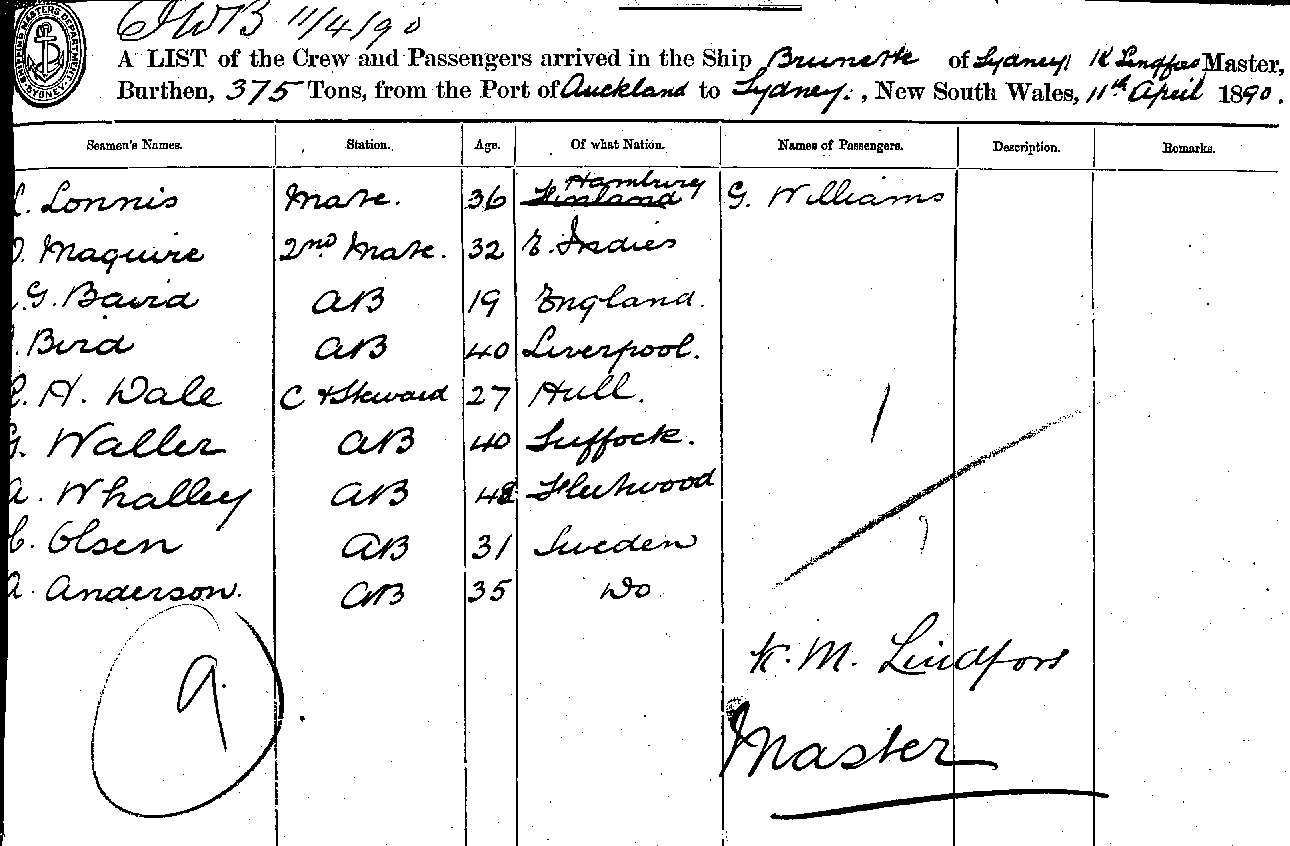 JWB 11/4/90
A LIST of the Crew and Passengers arrived in the Ship Brunette of Sydney, K Lingfors Master,
Burthen, 375 Tons, from the Port of Auckland to Sydney, New South Wales, 11th April 1890.
Seamen's Names. Station. Age. Of what Nation. Names of Passengers. Description. Remarks.
Lonnis Mate. 36 Finland Hamburg G. Williams
Maguire 2nd Mate. 32 E. Indies
G. Baird AB 19 England.
Bird AB 40 Liverpool.
H. Dale C & Steward 27 Hull.
G. Waller AB 40 Suffock.
A. Whalley AB 48 Fleetwood
C. Olsen AB 31 Sweden
A. Anderson. AB 35 Do
1
9
K. M. Lindfors
Master